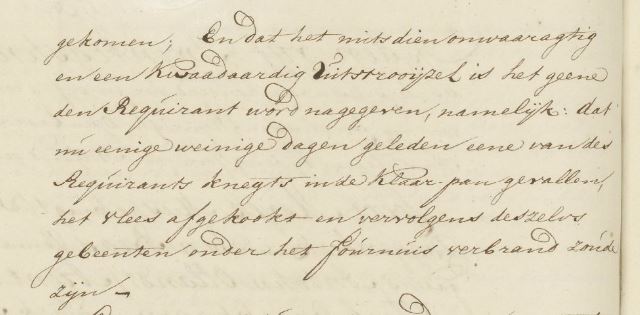 gekomen; En dat het mits dien onwaaragtig
en een kwaadaardig Uitstrooijzel is het geene
den Requirant word nagegeven, namelijk: dat
nu eenige weinige dagen geleden eene van des
Requirants knegts in de Klaar-pan gevallen,
het vlees afgekookt en vervolgens deszelvs
gebeenten onder het fournuis verbrand zoude
zijn —